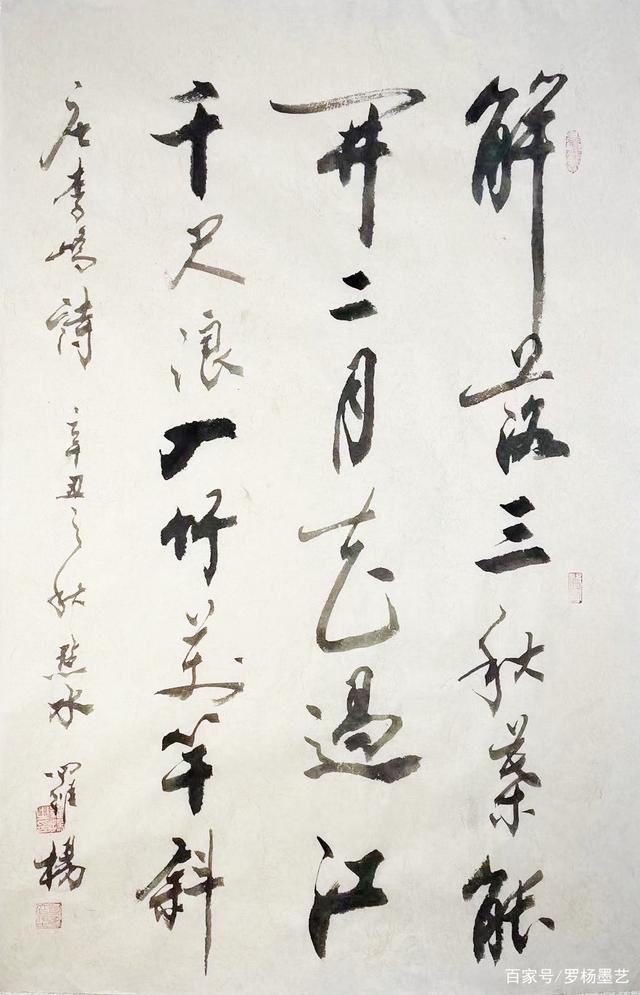 解落三秋葉能
開二月花過江
千尺浪入竹萬竿斜
唐李嶠詩 辛丑之秋 羅楊
百家号/罗杨墨艺